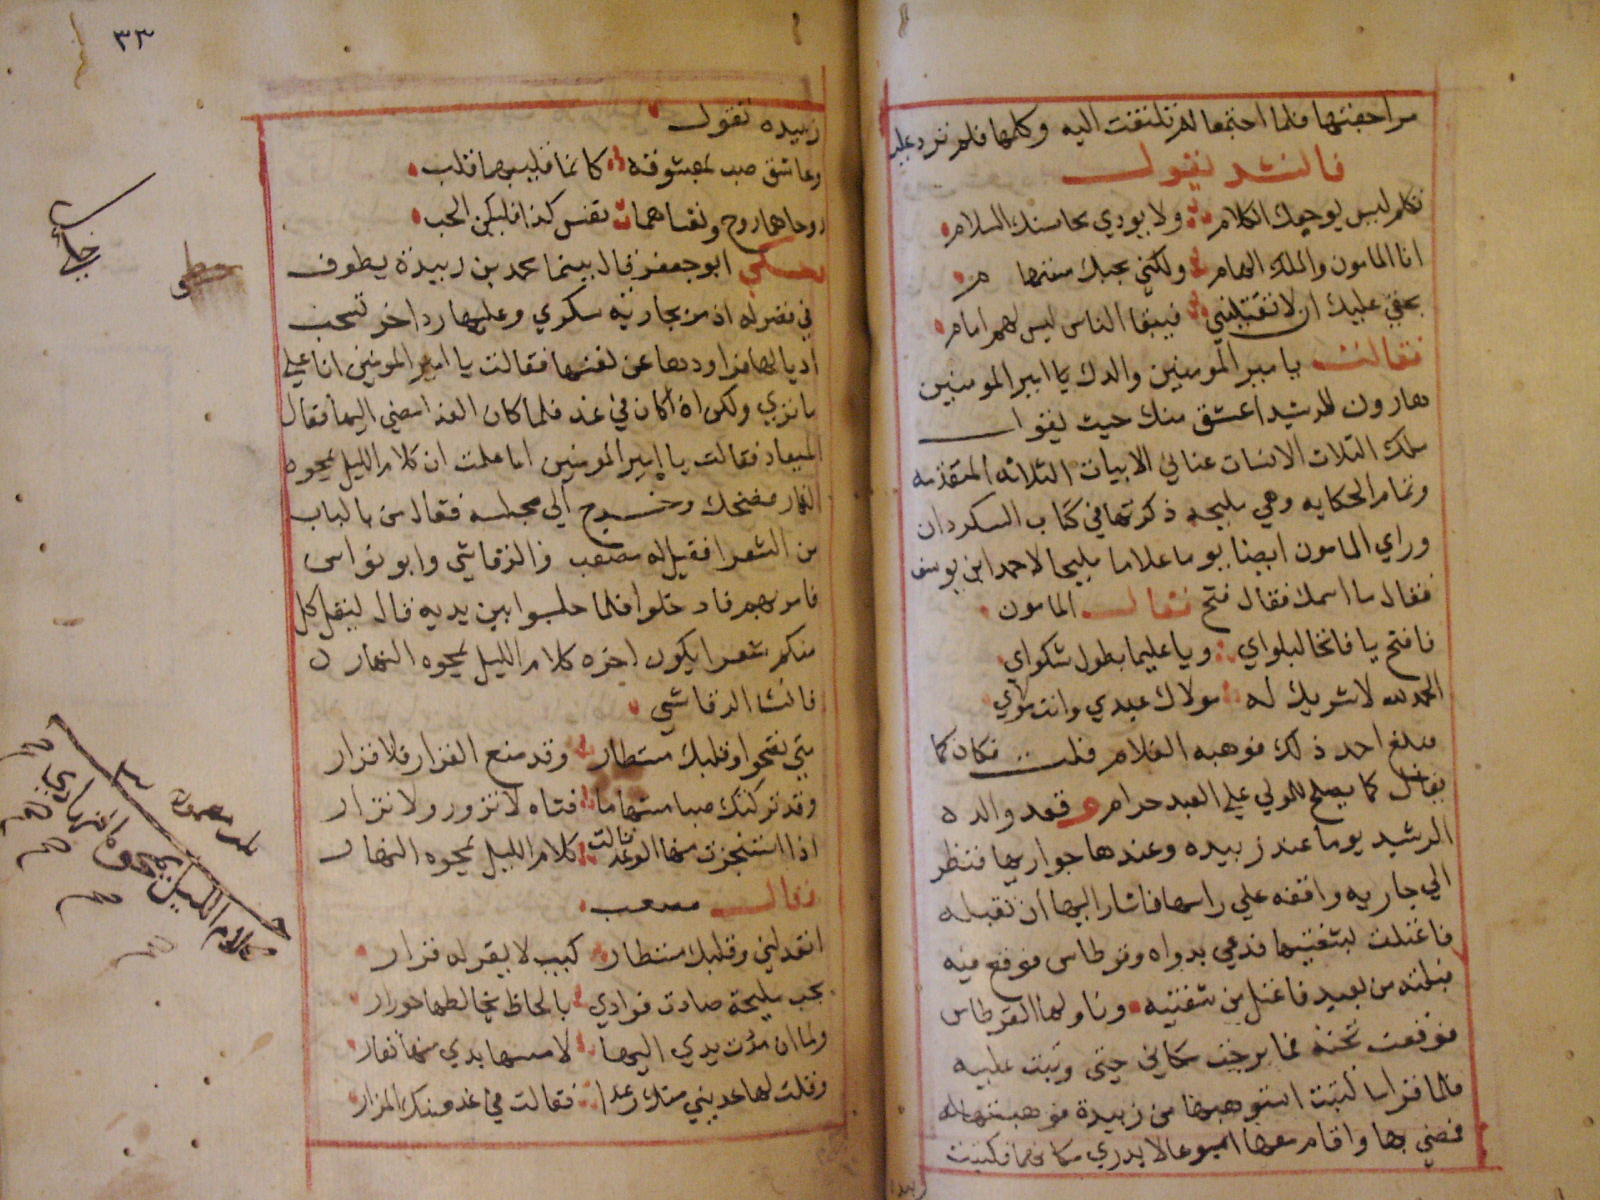 مراجعتها فلما اجتمعا لم تلتفت اليه وكلمها فلم ترد عليه
فانشد يقول
تكلم ليس يوجعك الكلام ولا يودي محاسنك السلام
انا المامون والملك الهمام ولكني بحبك مستهام
بحقي عليك ان لا تقتليني فيبقا الناس ليس لهم امام
فقالت يا مير المومنين والدك يا امير المومنين
هارون الرشيد اعشق منك حيث يقول
ملك الثلاث الانسات عناني الابيات الثلاثه المتقدمه
وتمام الحكايه وهي مليحه ذكرتها في كتاب السكردان
وراي المامون ايضا يوما غلاما مليحا لاحمد ابن يوسف
فقال ما اسمك فقال فتح فقال المامون
نا فتح يا فاتحا لبلواي ويا عليما بطول شكواي
الحمد لله لا شريك له مولاك عبدي وانت مولاي
فبلغ احمد ذلك فوهبه الغلام قلت فكان كما
يقال كما يصلح للمولي علي العبد حرام قعد والده
الرشيد يوما عند زبيده وعندها جواريها فنظر
الي جاريه واقفه علي راسها فاشار اليها ان تقبله
فاعتلت بشفتيها فدعي بدواه وقرطاس فوقع فيه
قبلته من بعيد فاعتل من شفتيه وناولها القرطاس
فوقعت تحته فما برحت مكاني حتى وثبت عليه
فلما قرا ما كتبت استوهبها من زبيدة فوهبتها له
فمضي بها واقام معها اسبوعا لا يدري مكانهما فكتبت
٣٣
زبيده تقول
وعاشق صب بمعشوقه كانما قلبيهما قلب
روحاهما روح ونفساهما نفس كذا فليكن الحب
حكي ابو جعفر قال بينما محمد بن زبيدة يطوف
في قصر له اذ مر بجاريه سكري وعليها رداخز تسحب
اديالها فراودها عن نفسها فقالت يا امير المومنين انا علي
ما تري ولكن اذا كان في غد فلما كان الغد امضي اليها فقال
الميعاد فقالت يا امير المومنين اما علمت ان كلام الليل يمحوه
النهار فضحك وخرج الي مجلسه فقال من بالباب
من الشعرا فقيل له مصعب والرقاشي وابو نواس
فامر بهم فادخلوا فلما جلسوا بين يديه قال ليقل كل
منكم شعرا يكون اخره كلام الليل يمحوه النهار
فانشا الرقاشي
متي تصحوا وقلبك مستطار وقد منع القرار فلا قرار
وقد تركتك صبا مستهاما فتاه لا تزور ولا تزار
اذا استنجزت منها الوعد قالت كلام الليل يمحوه النهار
فقال مصعب
اتعدليني وقلبك مستطار كييب لا يقر له قرار
بحب مليحة صادت فوادي بالحاظ يخالطها حورار
ولما ان مددت يدي اليها لامسها بدي منها نفار
وقلت لها عديني منك وعدا فقالت في غد منك المزار
كلام الليل يمحوه النهار